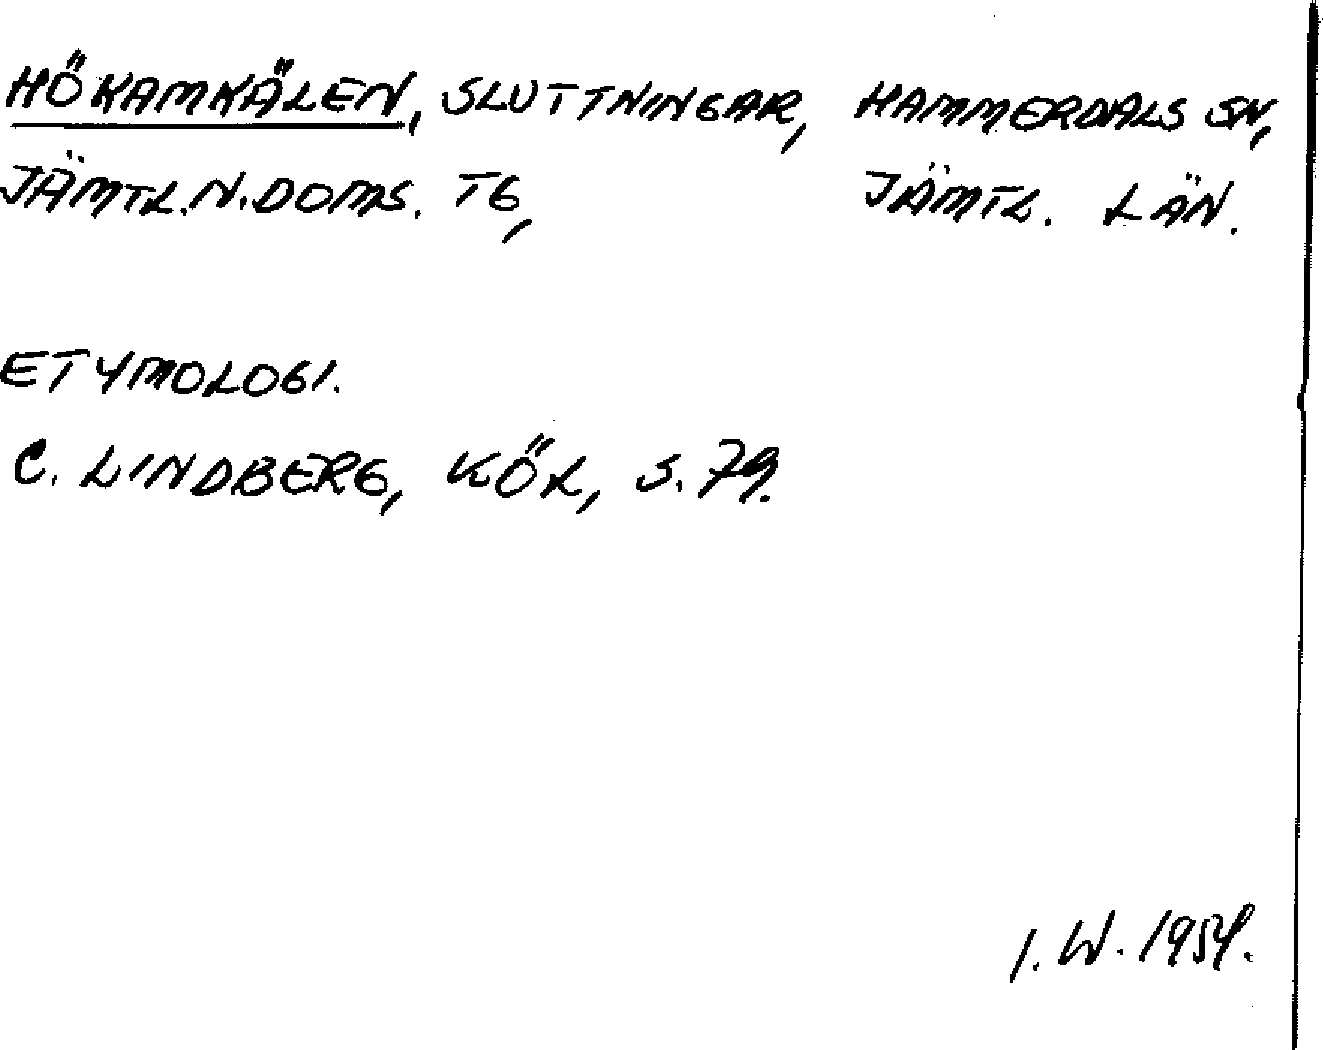 HÖKAMKÄLEN, SLUTTNINGAR, HAMMERDALS SN,
JÄMTL.N.DOMS. TG, JÄMTL. LÄN.
ETYMOLOGI.
C. LINDBERG, KÖL, S. 79.
I. W. 1954.